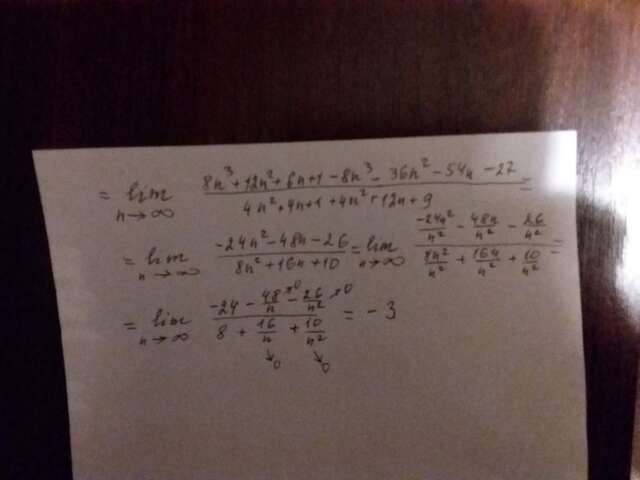 = lim n→∞ (8n³ + 12n² + 6n + 1 - 8n³ - 36n² - 54n - 27) / (4n² + 4n + 1 + 4n² + 12n + 9) =
= lim n→∞ (-24n² - 48n - 26) / (8n² + 16n + 10) = lim n→∞ (-24n²/n² - 48n/n² - 26/n²) / (8n²/n² + 16n/n² + 10/n²) =
= lim n→∞ (-24 - 48/n →0 - 26/n² →0) / (8 + 16/n →0 + 10/n² →0) = -3